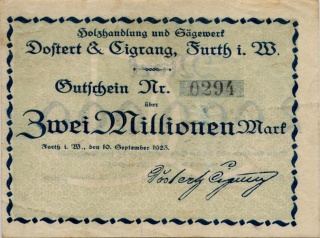 Holzhandlung und Sägewerk
Dostert & Cigrang, Furth i. W.
Gutschein Nr. 0294
über
Zwei Millionen Mark
Furth i. W., den 10. September 1923.
Dostert Cigrang